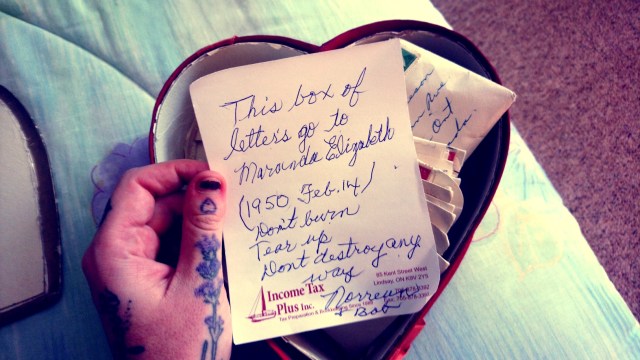 This box of
letters go to
Maranda Elizabeth
(1950 Feb. 14)
Don't burn
Tear up
Dont destroy any
way
Norreen
& Bob
Income Tax
Plus Inc.
Tax Preparation & Bookkeeping Since
Kent Street West
Lindsay, ON K9V 2Y5
Ave
Ont